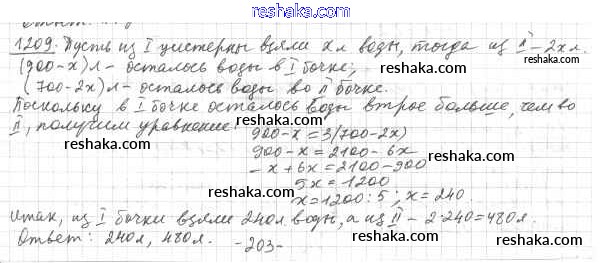 reshaka.com
1209. Пусть из I цистерны взяли x л воды, тогда из II – 2x л.
(900-x) л - осталось воды в I бочке; reshaka.com
(700-2x) л - осталось воды во II бочке.
Поскольку в I бочке осталось воды втрое больше, чем во
II, получим уравнение: reshaka.com
900-x = 3(700-2x)
900-x = 2100-6x
reshaka.com
-x+6x = 2100-900
5x = 1200
reshaka.com x = 1200:5; x = 240. reshaka.com
Итак, из I бочки взяли 240л воды, а из II – 2·240=480л.
Ответ: 240л, 480л. -203- reshaka.com
reshaka.com